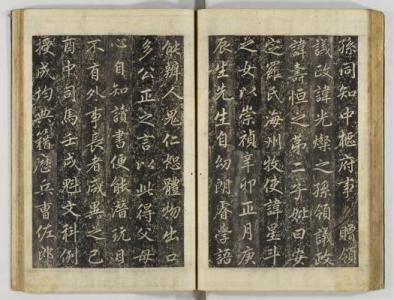 孫同知中樞府事贈領
議政諱光燦之孫領議政
諱壽恒之第二子妣曰安
定羅氏海州牧使諱星斗
之女以崇禎辛卯正月庚
辰生先生自幼朗睿學語
能辨人鬼仁恕體物出口
多公正之言以此得父母
心自知讀書便能潛玩目
不有外事長者咸異之己
酉中司馬壬戌魁文科例
授成均典籍歷兵曹佐郎